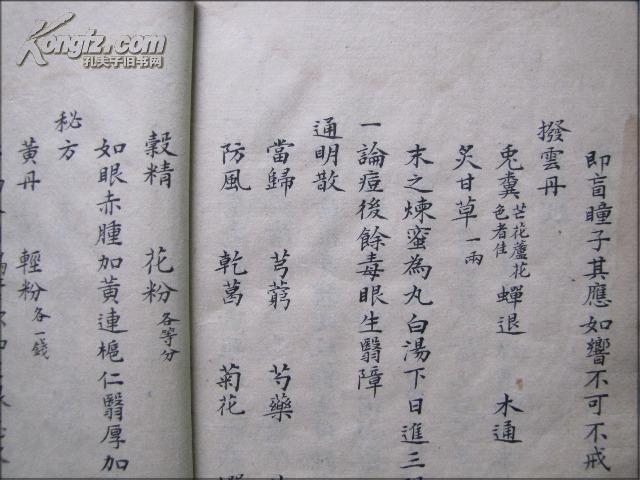 Kongfz.com
孔夫子旧书网
即盲瞳子其應如響不可不戒
撥雲丹
兎糞 芒花蘆花色者佳 蟬退 木通
炙甘草 一兩
末之煉蜜為丸白湯下日進三
一論痘後餘毒眼生翳障
通明散
當歸 芎藭 芍藥
防風 乾葛 菊花
穀精 花粉 各等分
如眼赤腫加黃連梔仁翳厚加
秘方
黃丹 輕粉 各一錢